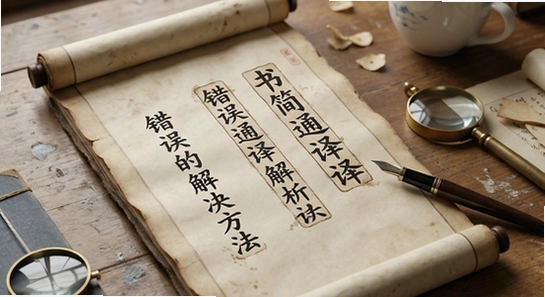 书简通译译
错误通译解析诀
错误的解决方法